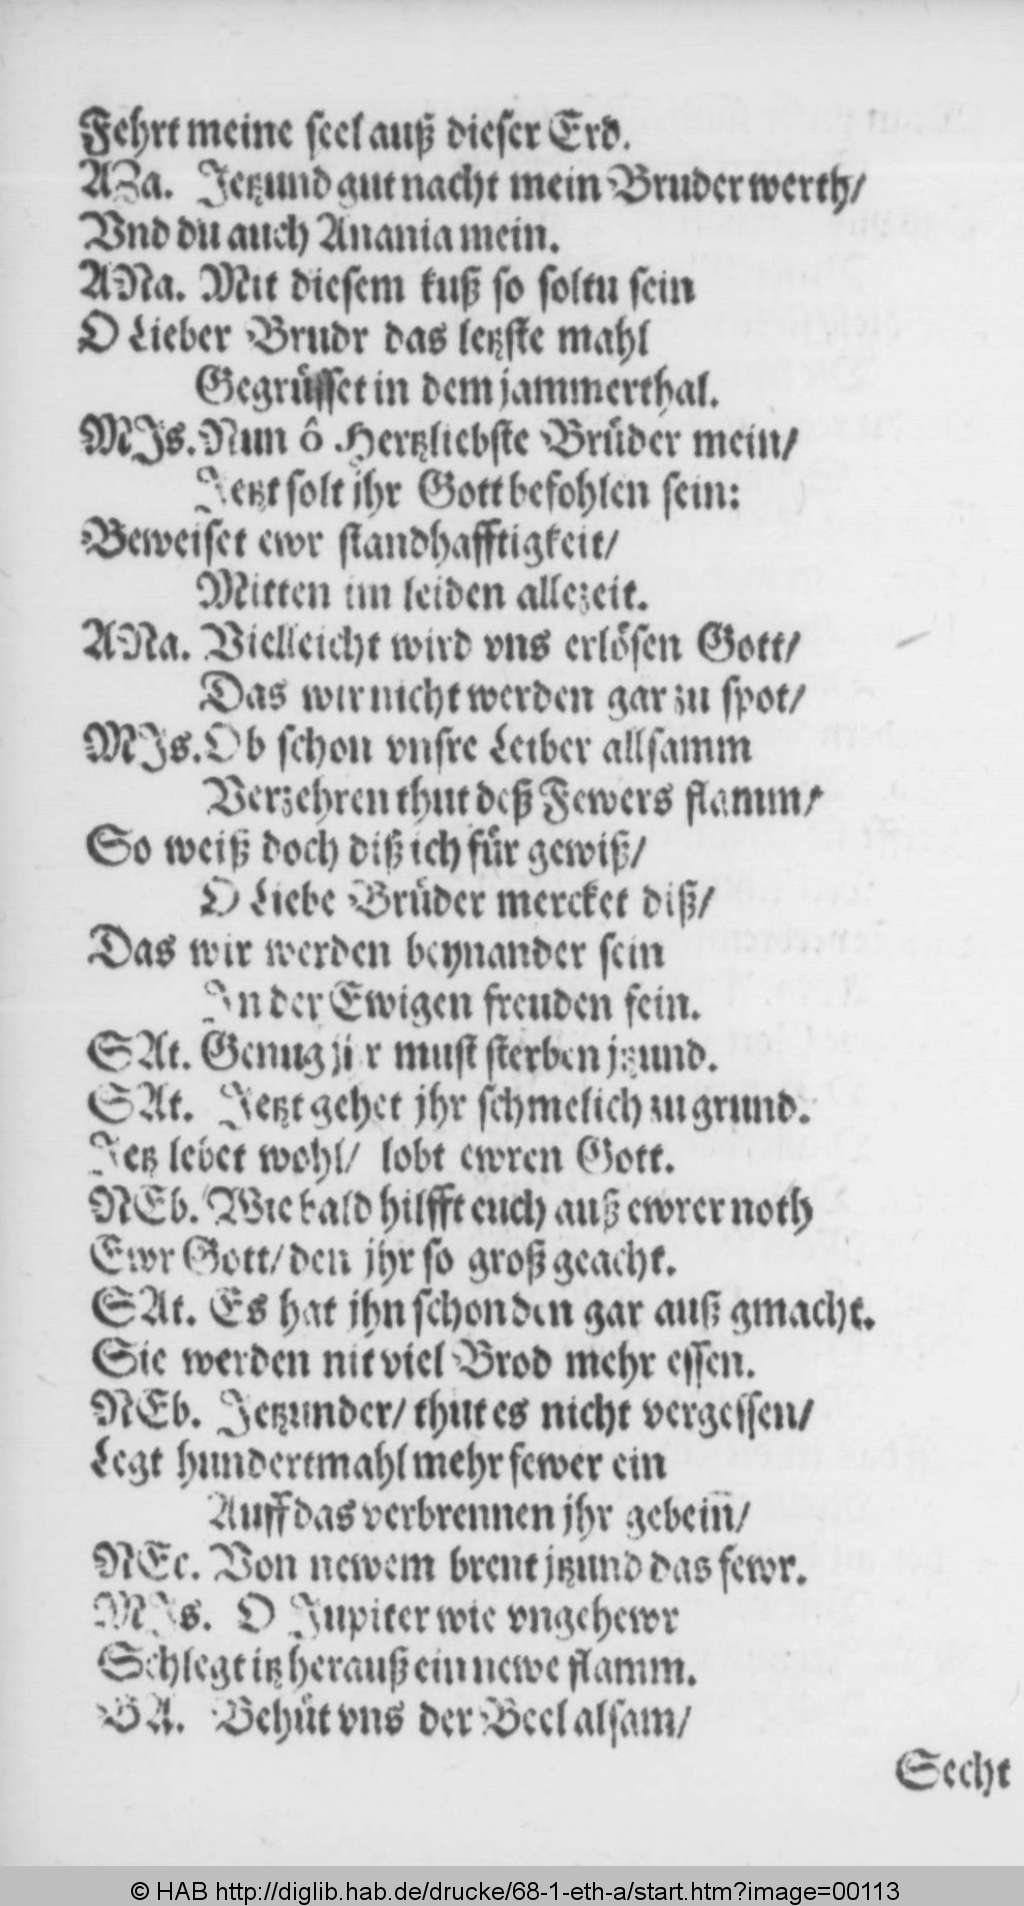 Fehrt meine seel auß dieser Erd.
AZa. Jetzund gut nacht mein Bruder werth/
Vnd du auch Anania mein.
ANa. Mit diesem kuß so soltu sein
O Lieber Brudr das letzste mahl
Gegrüsset in dem jammerthal.
MJs. Nun ô Hertzliebste Brüder mein/
Jetzt solt jhr Gott befohlen sein:
Beweiset ewr standhafftigkeit/
Mitten im leiden allezeit.
ANa. Vielleicht wird vns erlösen Gott/
Das wir nicht werden gar zu spot/
MJs. Ob schon vnsre Leiber allsamm
Verzehren thut deß Fewers flamm/
So weiß doch diß ich für gewiß/
O Liebe Brüder mercket diß/
Das wir werden beynander sein
Jn der Ewigen freuden fein.
SAt. Genug jhr must sterben jtzund.
SAt. Jetzt gehet jhr schmelich zu grund.
Jetz lebet wohl/ lobt ewren Gott.
NEb. Wie bald hilfft euch auß ewrer noth
Ewr Gott/ den jhr so groß geacht.
SAt. Es hat jhn schon den gar auß gmacht.
Sie werden nit viel Brod mehr essen.
NEb. Jetzunder/ thut es nicht vergessen/
Legt hundertmahl mehr fewer ein
Auff das verbrennen jhr gebein/
NEc. Von newem brent jtzund das fewr.
MJs. O Jupiter wie vngehewr
Schlegt itz herauß ein newe flamm.
BA. Behüt vns der Beel alsam/
Secht
© HAB http://diglib.hab.de/drucke/68-1-eth-a/start.htm?image=00113